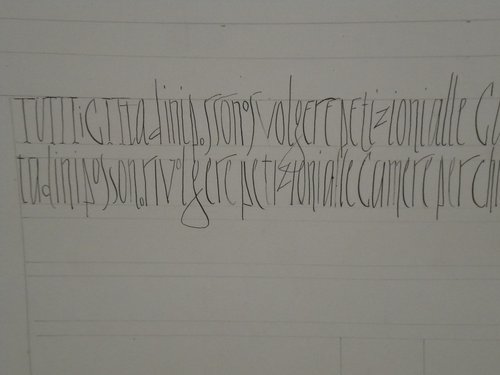 TUTTI i CITTadini possono svolgere petizioni alle
tadini possono rivolgere petizioni alle Camere per